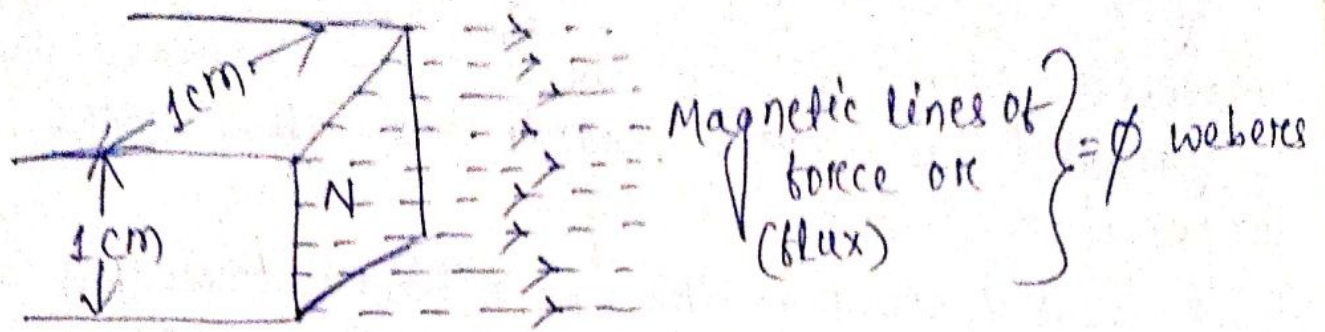 1cm
1cm
N
Magnetic lines of
force or
(flux)
= ϕ webers